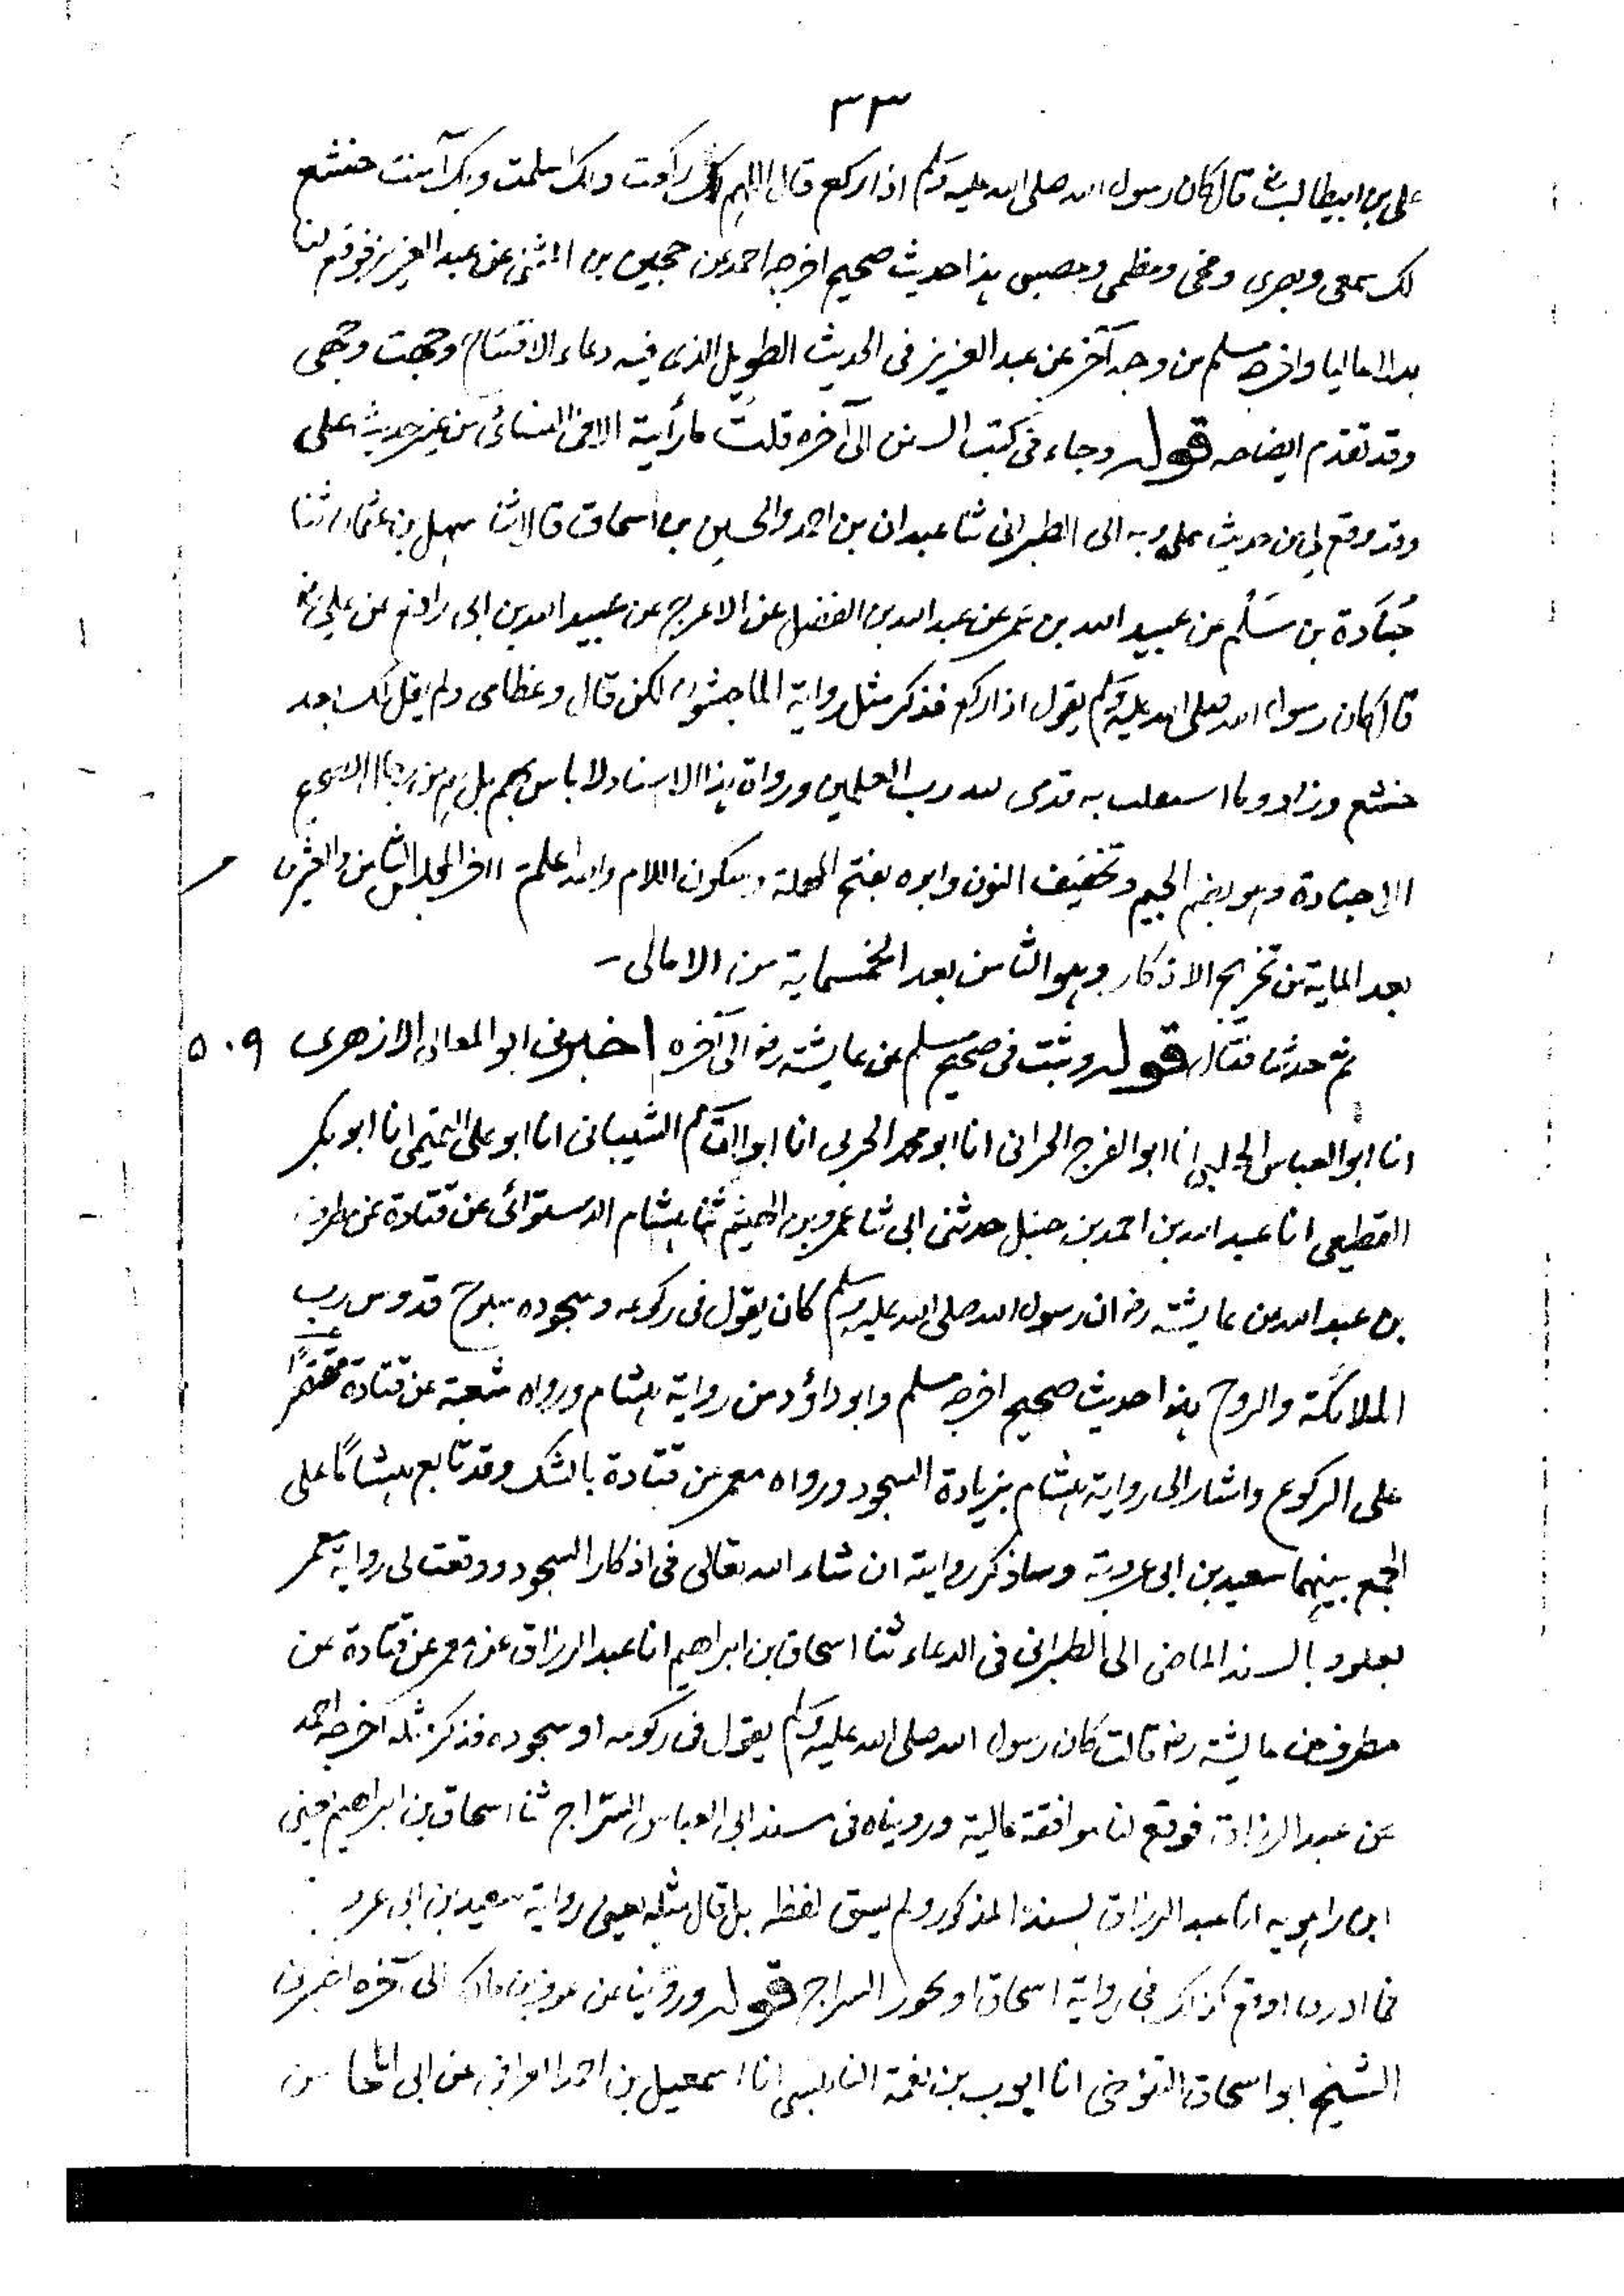 ٣٣
على بن ابيطالب رض قال كان رسول الله صلى الله عليه وسلم اذا ركع قال اللهم لك ركعت ولك اسلمت وبك آمنت خشع
لك سمعى وبصرى ومخى وعظمى وعصبى هذا حديث صحيح اخرجه احمد عن حجين بن المثنى عن عبد العزيز فوقع لنا
بدلا عاليا واخرجه مسلم من وجه آخر عن عبد العزيز فى الحديث الطويل الذى فيه دعاء الافتتاح وجهت وجهى
وقد تقدم ايضاحه قوله وجاء فى كتب السنن الى آخره قلت ما رأيته الا فى النسائى من غير حديث على
وقد وقع لى من حديث على وبه الى الطبرانى ثنا عبدان بن احمد والحسين بن اسحاق قالا ثنا سهل بن عثمان ثنا
جُنَادة بن سَلْم عن عبيد الله بن عمر عن عبد الله بن الفضل عن الاعرج عن عبيد الله بن ابى رافع عن على رض
قال كان رسول الله صلى الله عليه وسلم يقول اذا ركع فذكر مثل رواية الماجشون لكن قال وعظامى ولم يقل لك بعد
خشع وزاد وما استقلت به قدمى لله رب العلمين ورواة هذا الاسناد لا باس بهم بل هم من رجال الصحيح
الا جنادة وهو بضم الجيم وتخفيف النون وابوه بفتح المهملة وسكون اللام والله اعلم آخر المجلس الثامن والعشرين
بعد الماية من تخريج الاذكار وهو الثامن بعد الخمسماية من الامالى-
ثم حدثنا فقال قوله وثبت فى صحيح مسلم عن عايشة رض الى آخره اخبرنى ابو المعالى الازهرى ٥٠٩
انا ابو العباس الحلبى انا ابو الفرج الحرانى انا ابو محمد الحربى انا ابو القاسم الشيبانى انا ابو على التميمى انا ابو بكر
القطيعى انا عبد الله بن احمد بن حنبل حدثنى ابى ثنا عمرو بن الهيثم ثنا هشام الدستوائى عن قتادة عن مطرف
بن عبد الله عن عايشة رض ان رسول الله صلى الله عليه وسلم كان يقول فى ركوعه وسجوده سبوح قدوس رب
الملائكة والروح هذا حديث صحيح اخرجه مسلم وابو داؤد من رواية هشام ورواه شعبة عن قتادة مقتصرًا
على الركوع واشار الى رواية هشام بزيادة السجود ورواه معمر عن قتادة بالشك وقد تابع هشامًا على
الجمع بينهما سعيد بن ابى عروبة وساذكر روايته ان شاء الله تعالى فى اذكار السجود ووقعت لى رواية معمر
بعلو وبالسند الماضى الى الطبرانى فى الدعاء ثنا اسحاق بن ابراهيم انا عبد الرزاق عن معمر عن قتادة عن
مطرف عن عايشة رض قالت كان رسول الله صلى الله عليه وسلم يقول فى ركوعه او سجوده فذكر مثله اخرجه احمد
عن عبد الرزاق فوقع لنا موافقة عالية ورويناه فى مسند ابى العباس السرّاج ثنا اسحاق بن ابراهيم يعنى
ابن راهويه انا عبد الرزاق بسنده المذكور ولم يسق لفظه بل قال مثله يعنى رواية سعيد بن ابى عرو
فما ادرى اوقع كذلك فى رواية اسحاق او تجوز السراج قوله وروينا عن عوف بن مالك الى آخره اخبرنى
الشيخ ابو اسحاق التنوخى انا ايوب بن نعمة النابلسى انا اسمعيل بن احمد العراقى عن ابى المحاسن